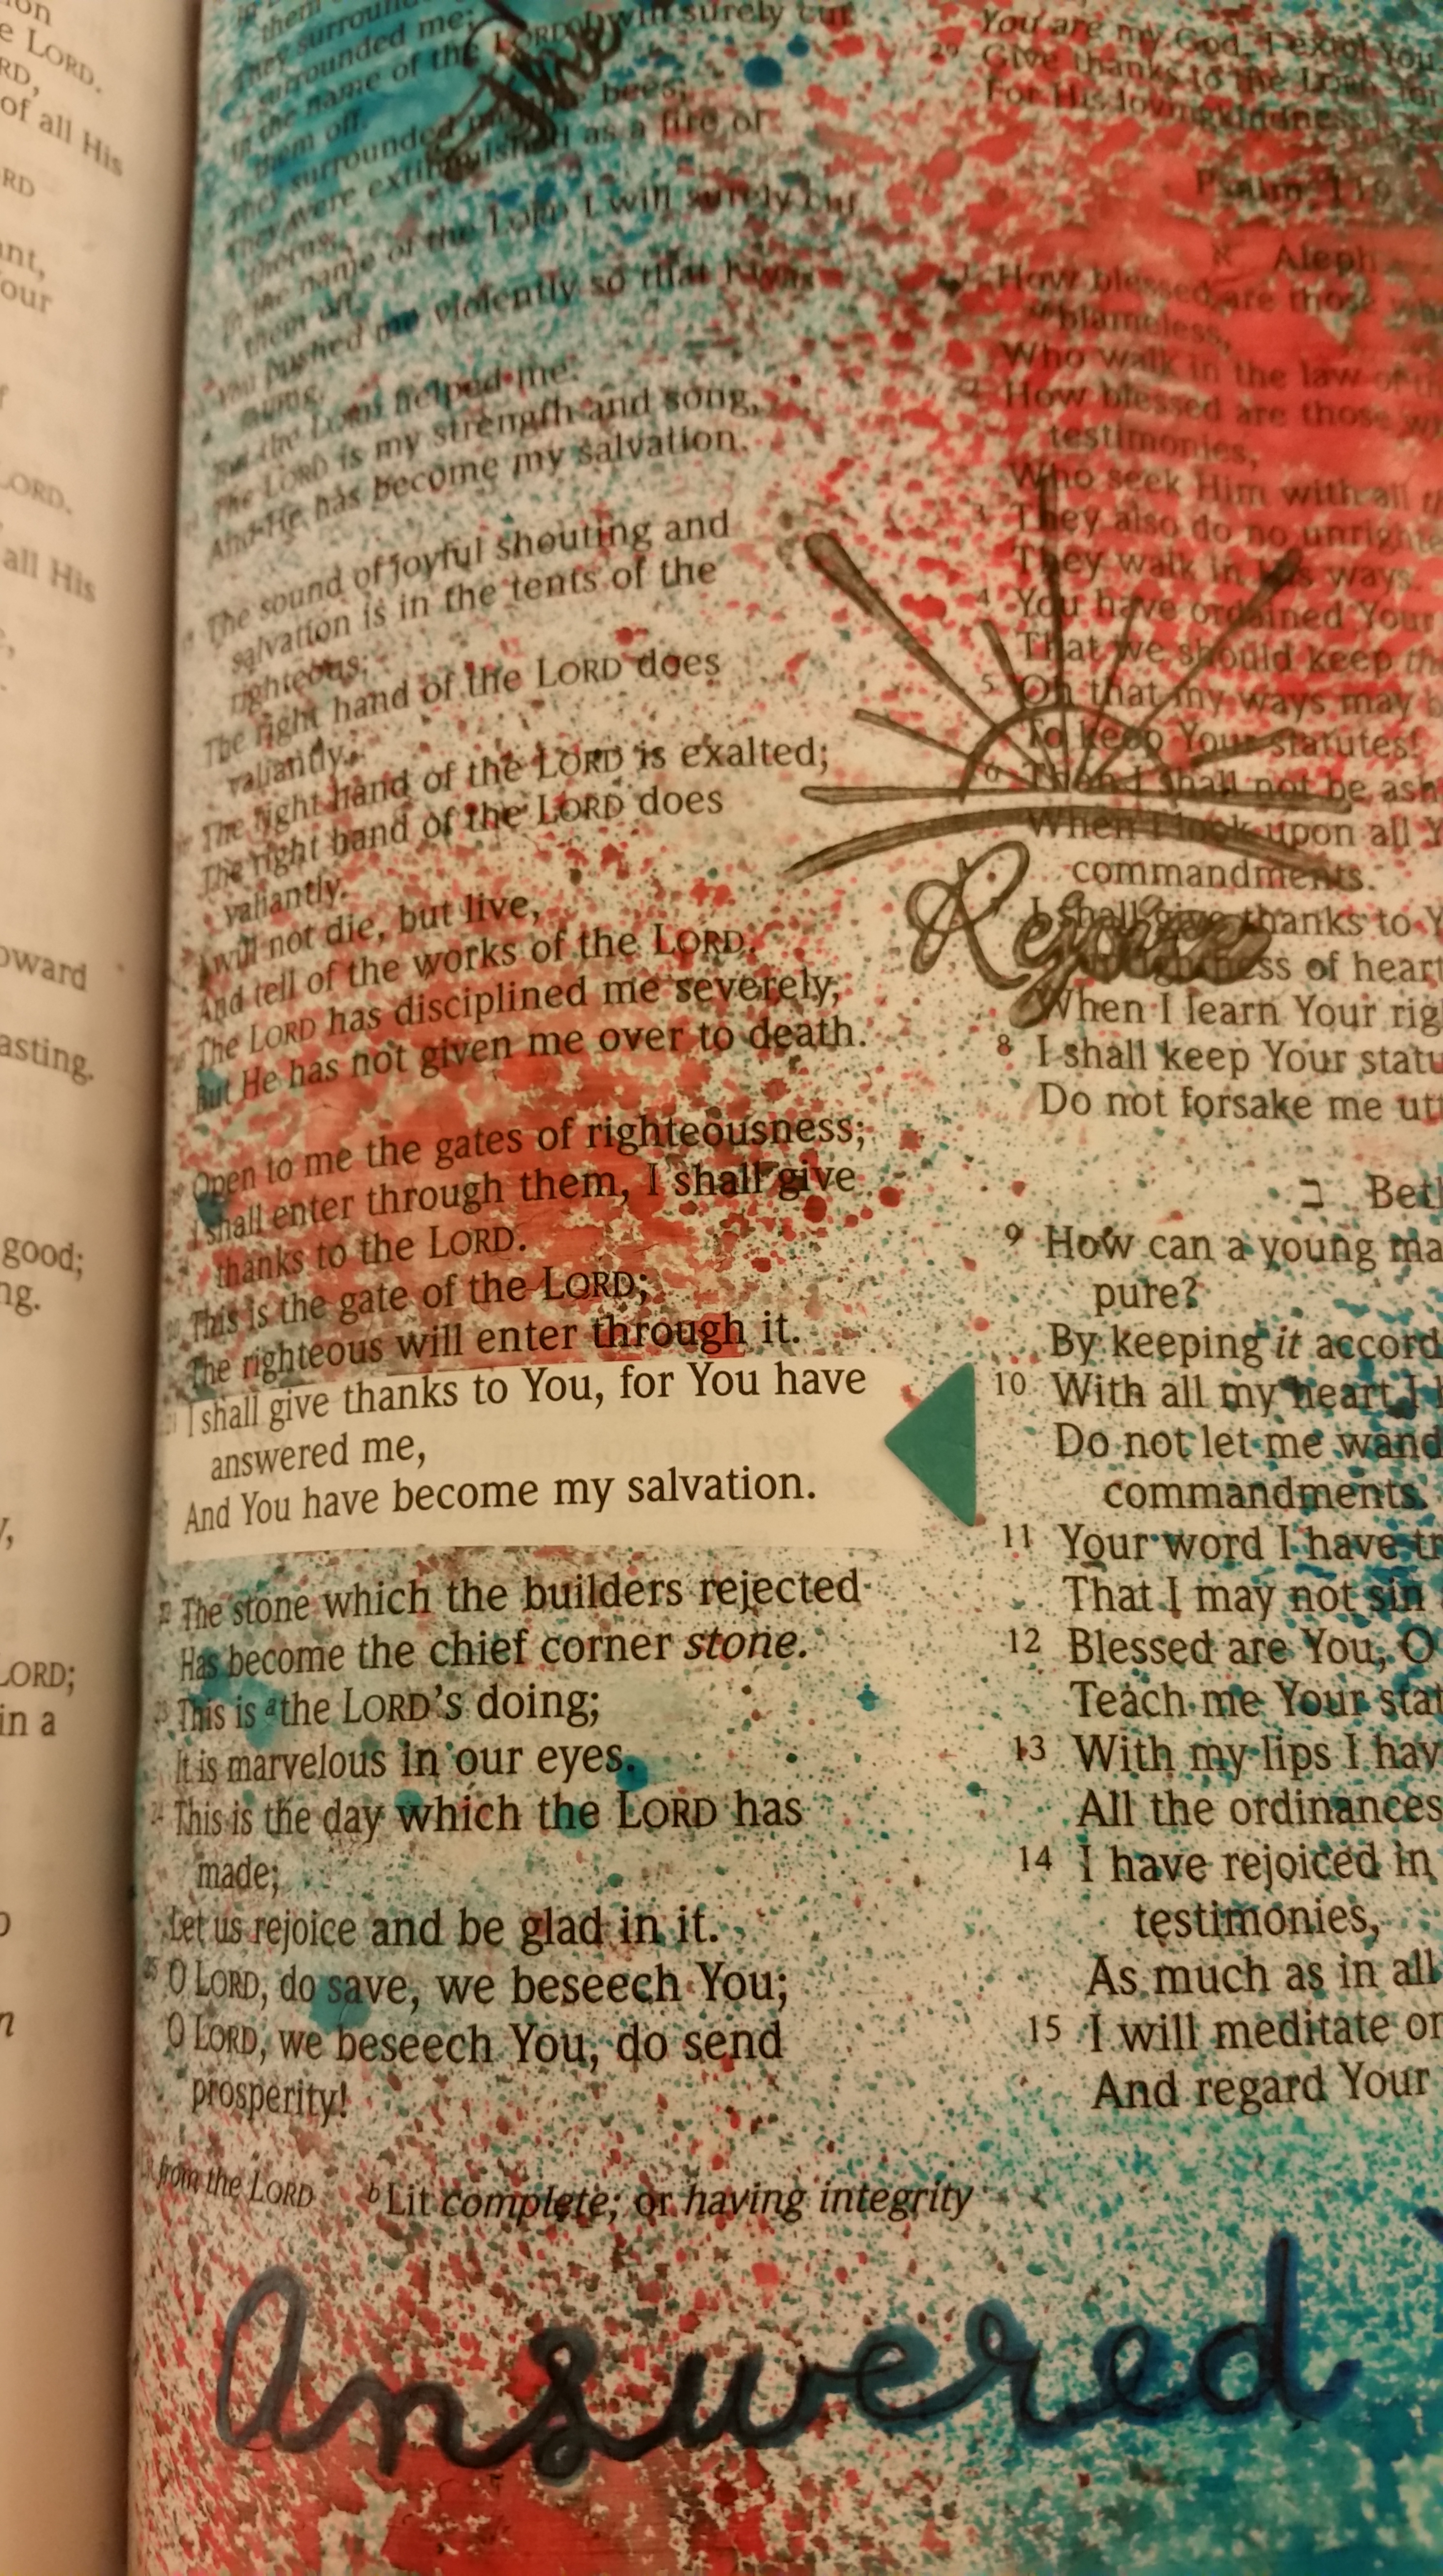 on
e LORD.
RD,
of all His
RD
ant,
our
f
LORD.
all His
oward
asting.
good;
ng.
y,
LORD;
in a
o
n
them
They surround
surrounded me;
In the name of the LORD I will surely cut
them off.
They surrounded me like bees;
They were extinguished as a fire of
thorns;
In the name of the LORD I will surely cut
them off.
You pushed me violently so that I was
falling,
But the LORD helped me.
The LORD is my strength and song,
And He has become my salvation.
The sound of joyful shouting and
salvation is in the tents of the
righteous;
The right hand of the LORD does
valiantly.
The right hand of the LORD is exalted;
The right hand of the LORD does
valiantly.
I will not die, but live,
And tell of the works of the LORD.
The LORD has disciplined me severely,
But He has not given me over to death.
Open to me the gates of righteousness;
I shall enter through them, I shall give
thanks to the LORD.
This is the gate of the LORD;
The righteous will enter through it.
21 I shall give thanks to You, for You have
answered me,
And You have become my salvation.
22 The stone which the builders rejected
Has become the chief corner stone.
23 This is a the LORD'S doing;
It is marvelous in our eyes.
24 This is the day which the LORD has
made;
Let us rejoice and be glad in it.
25 O LORD, do save, we beseech You;
O LORD, we beseech You, do send
prosperity!
You are my God, I extol You
29 Give thanks to the LORD, for
For His lovingkindness is
Psalm 119
א Aleph
1 How blessed are those
b blameless,
Who walk in the law of
2 How blessed are those w
testimonies,
Who seek Him with all
3 They also do no unrighte
They walk in His ways.
4 You have ordained Your
That we should keep th
5 Oh that my ways may b
To keep Your statutes!
6 Then I shall not be ash
When I look upon all Y
commandments.
Rejoice
7 I shall give thanks to Y
uprightness of heart
When I learn Your rig
8 I shall keep Your statu
Do not forsake me utt
ב Bet
9 How can a young ma
pure?
By keeping it accord
10 With all my heart I h
Do not let me wand
commandments.
11 Your word I have tr
That I may not sin
12 Blessed are You, O
Teach me Your stat
13 With my lips I hav
All the ordinances
14 I have rejoiced in
testimonies,
As much as in all
15 I will meditate on
And regard Your
from the LORD b Lit complete; or having integrity
Answered